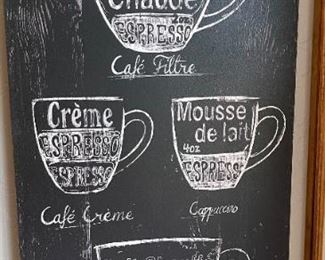 Chaude
ESPRESSO
Café Filtre
Crème
ESPRESSO
ESPRESSO
Café Crème
Mousse
de lait
4oz
ESPRESS
Cappuccino